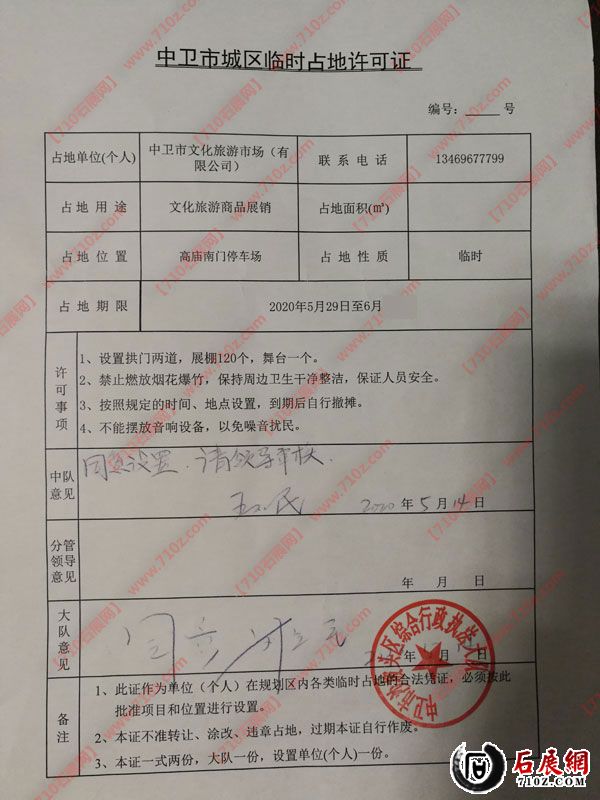 中卫市城区临时占地许可证
编号: 号
占地单位(个人) 中卫市文化旅游市场（有限公司） 联系电话 13469677799
占地用途 文化旅游商品展销 占地面积(㎡)
占地位置 高庙南门停车场 占地性质 临时
占地期限 2020年5月29日至6月
许可事项
1、设置拱门两道，展棚120个，舞台一个。
2、禁止燃放烟花爆竹，保持周边卫生干净整洁，保证人员安全。
3、按照规定的时间、地点设置，到期后自行撤摊。
4、不能摆放音响设备，以免噪音扰民。
中队意见
同意设置.请领导审核.
2020年5月14日
分管领导意见
年 月 日
大队意见
同意
月 日
备注
1、此证作为单位（个人）在规划区内各类临时占地的合法凭证，必须按此
批准项目和位置进行设置。
2、本证不准转让、涂改、违章占地，过期本证自行作废。
3、本证一式两份，大队一份，设置单位(个人)一份。
石展網
710z.com
【710石展网】www.710z.com